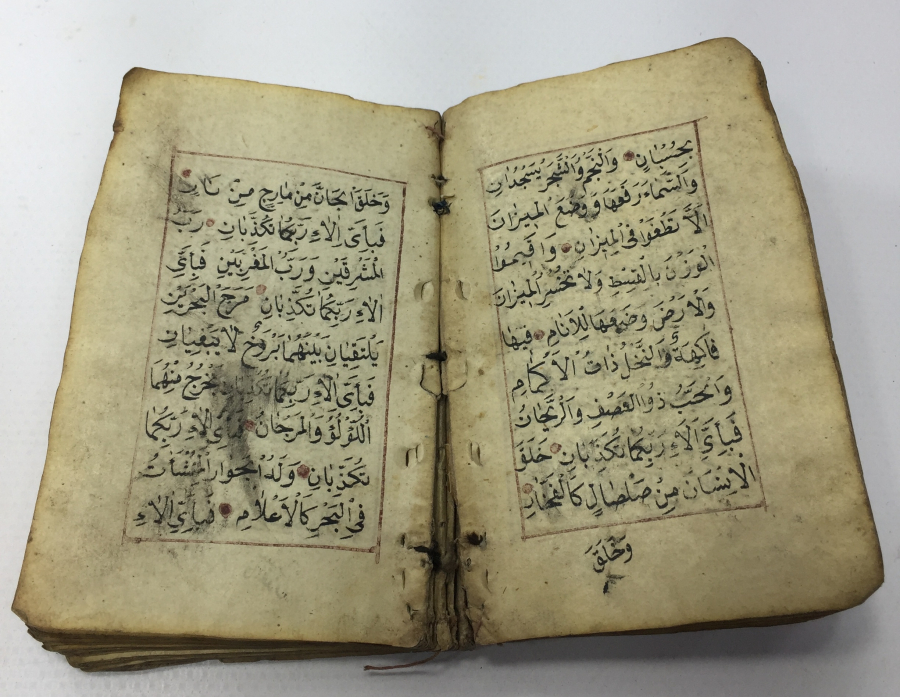 بِحُسْبَانٍ وَالنَّجْمُ وَالشَّجَرُ يَسْجُدَانِ
وَالسَّمَاءَ رَفَعَهَا وَوَضَعَ الْمِيزَانَ
اَلَّا تَطْغَوْا فِي الْمِيزَانِ وَاَقِيمُوا
الْوَزْنَ بِالْقِسْطِ وَلَا تُخْسِرُوا الْمِيزَانَ
وَالْاَرْضَ وَضَعَهَا لِلْاَنَامِ فِيهَا
فَاكِهَةٌ وَالنَّخْلُ ذَاتُ الْاَكْمَامِ
وَالْحَبُّ ذُو الْعَصْفِ وَالرَّيْحَانُ
فَبِاَيِّ اٰلَاءِ رَبِّكُمَا تُكَذِّبَانِ خَلَقَ
الْاِنْسَانَ مِنْ صَلْصَالٍ كَالْفَخَّارِ
وَخَلَقَ
وَخَلَقَ الْجَانَّ مِنْ مَارِجٍ مِنْ نَارٍ
فَبِاَيِّ اٰلَاءِ رَبِّكُمَا تُكَذِّبَانِ رَبُّ
الْمَشْرِقَيْنِ وَرَبُّ الْمَغْرِبَيْنِ فَبِاَيِّ
اٰلَاءِ رَبِّكُمَا تُكَذِّبَانِ مَرَجَ الْبَحْرَيْنِ
يَلْتَقِيَانِ بَيْنَهُمَا بَرْزَخٌ لَا يَبْغِيَانِ
فَبِاَيِّ اٰلَاءِ رَبِّكُمَا تُكَذِّبَانِ يَخْرُجُ مِنْهُمَا
اللُّؤْلُؤُ وَالْمَرْجَانُ فَبِاَيِّ اٰلَاءِ رَبِّكُمَا
تُكَذِّبَانِ وَلَهُ الْجَوَارِ الْمُنْشَآتُ
فِي الْبَحْرِ كَالْاَعْلَامِ فَبِاَيِّ اٰلَاءِ